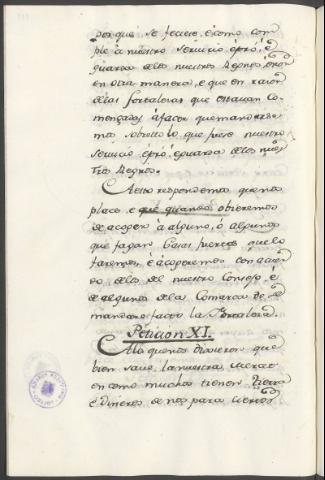 porque se feciese, è como com
ple à nuestro servicio è pró, è
guarda delos nuestros Regnos, è non
en otra manera, è que en razon
delas fortalezas que estavan co-
menzadas à facer que mandasemos
sobrello lo que fuese nuestro
servicio è pró, è guarda delos nues
tros Regnos.
A esto respondemos que nos
place è que quando obieremos
de acoger à alguno, ó algunos
que fagan Casas fuertes que lo
faremos, è acogeremos con acuer
do delos del nuestro Consejo, è
de algunos dela Comarca do
mandaremos facer la Fortaleza.
Peticion XI.
A lo que nos dixieron que
bien save la nuestra merced
en como muchos tienen Tierra
è Dineros de nos para ciertos